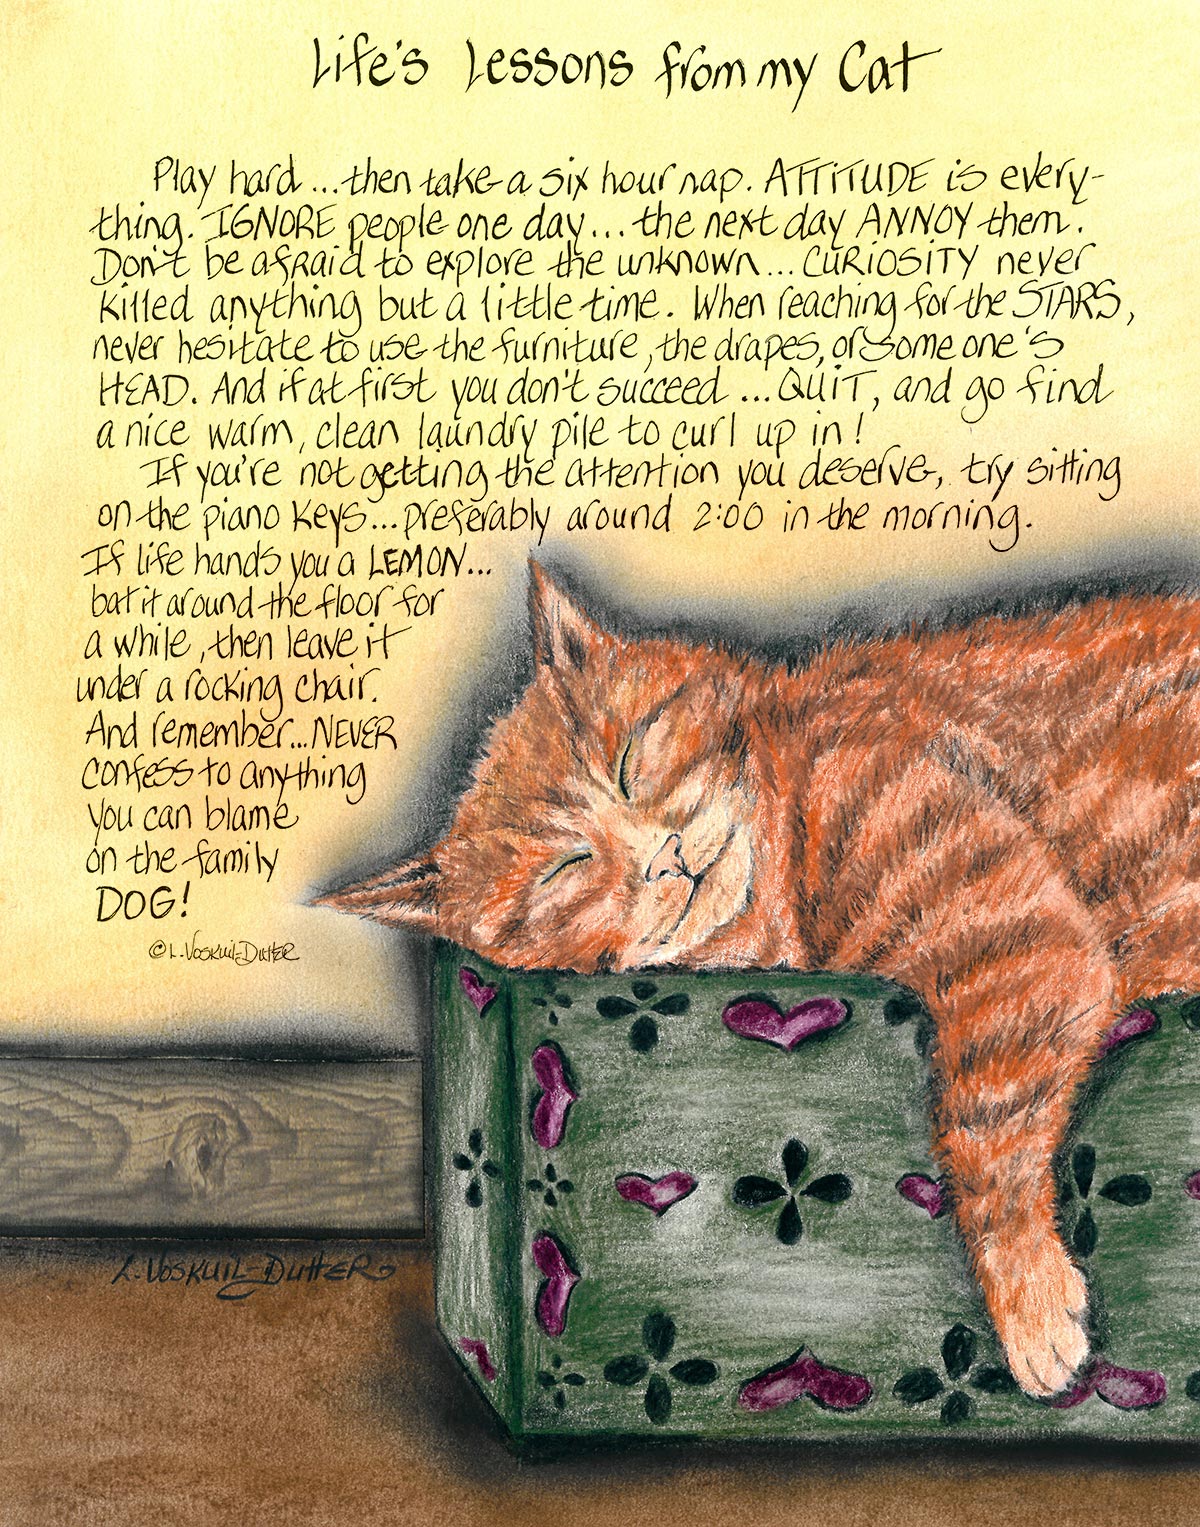 Life's Lessons from my Cat
Play hard...then take a six hour nap. ATTiTUDE is every-
thing. IGNORE people one day... the next day ANNOY them.
Don't be afraid to explore the unknown... CURiOSiTY never
killed anything but a little time. When reaching for the STARS,
never hesitate to use the furniture, the drapes, or someone's
HEAD. And if at first you don't succeed ... QUiT, and go find
a nice warm, clean laundry pile to curl up in!
If you're not getting the attention you deserve, try sitting
on the piano keys... preferably around 2:00 in the morning.
If life hands you a LEMON...
bat it around the floor for
a while, then leave it
under a rocking chair.
And remember... NEVER
confess to anything
you can blame
on the family
DOG!
© L. Voskuil-Dutter
L. Voskuil-Dutter